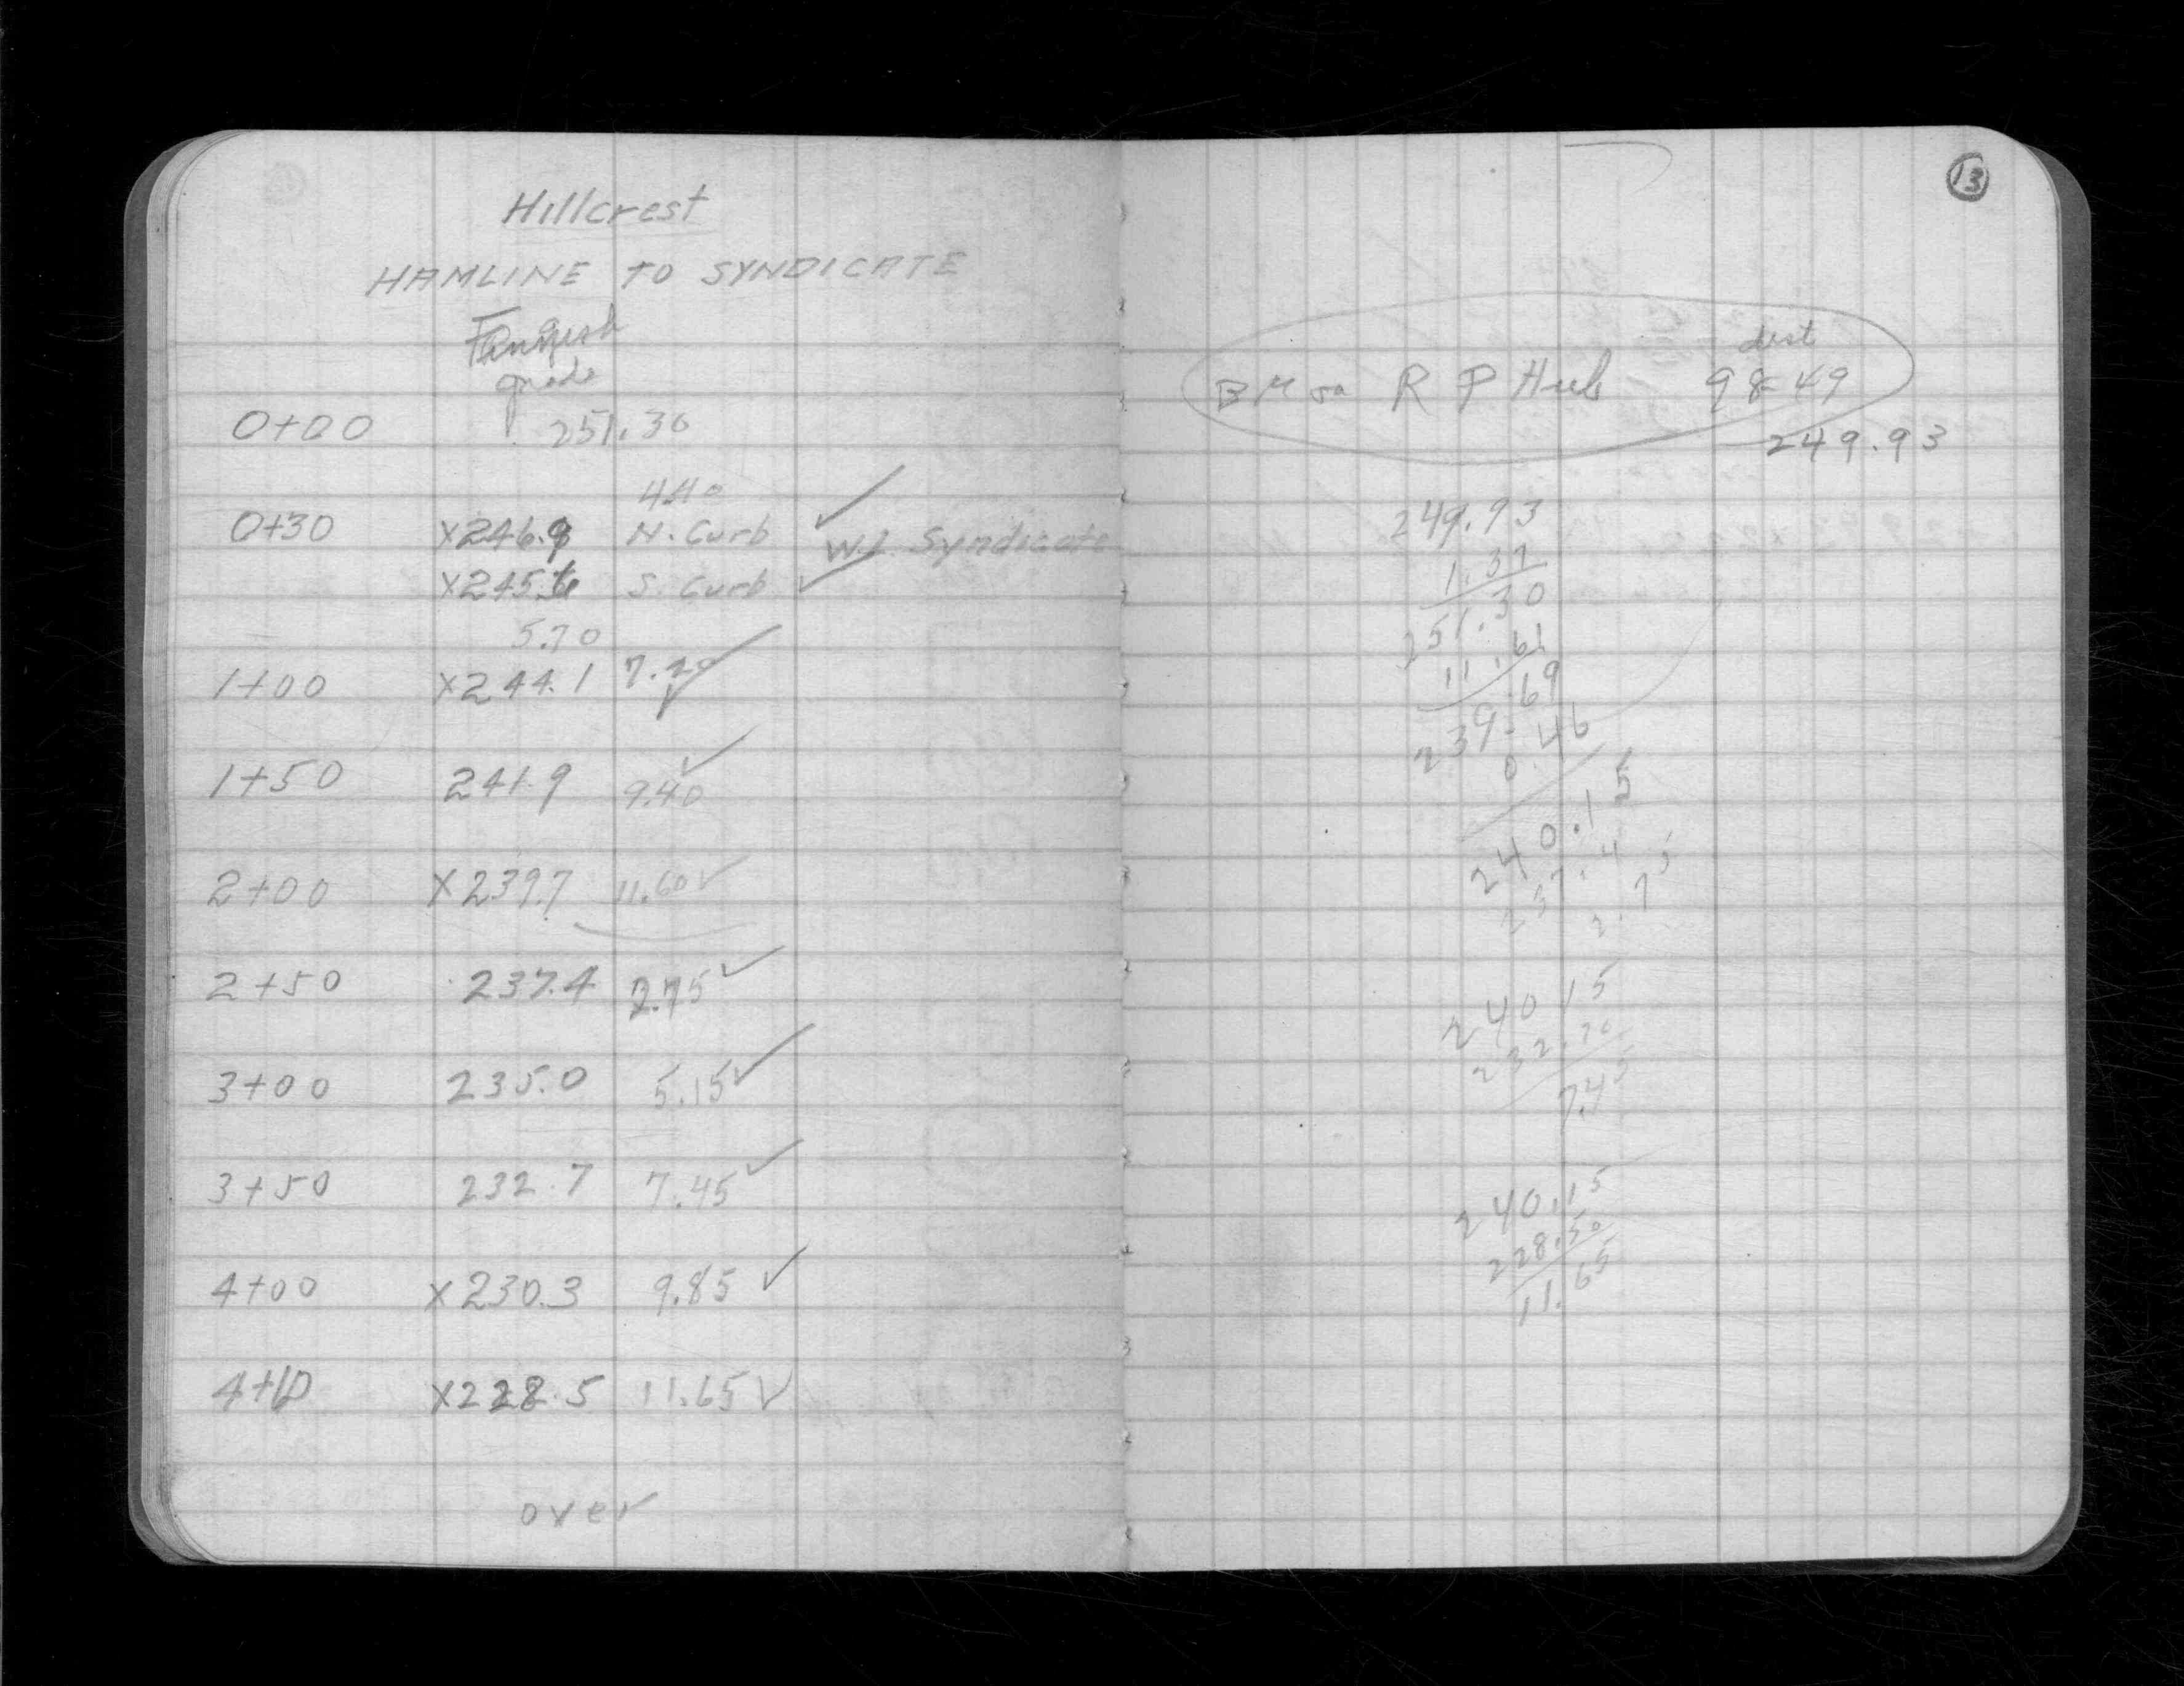 Hillcrest
HAMLINE TO SYNDICATE
grade
0+00 251.30
4.40
0+30 x246.9 N. Curb ✓ W.L. Syndicate
x245.6 S. Curb ✓
5.70
1+00 x244.1 7.20 ✓
1+50 241.9 9.40 ✓
2+00 x239.7 11.60 ✓
2+50 237.4 2.75 ✓
3+00 235.0 5.15 ✓
3+50 232.7 7.45 ✓
4+00 x230.3 9.85 ✓
x228.5 11.65 ✓
over
13
dist
BM on R P Hub 98-49
249.93
249.93
1.37
251.30
11.61
239.69
0.46
240.15
237.4
2.75
240 15
232.70
7.45
240.15
228.50
11.65